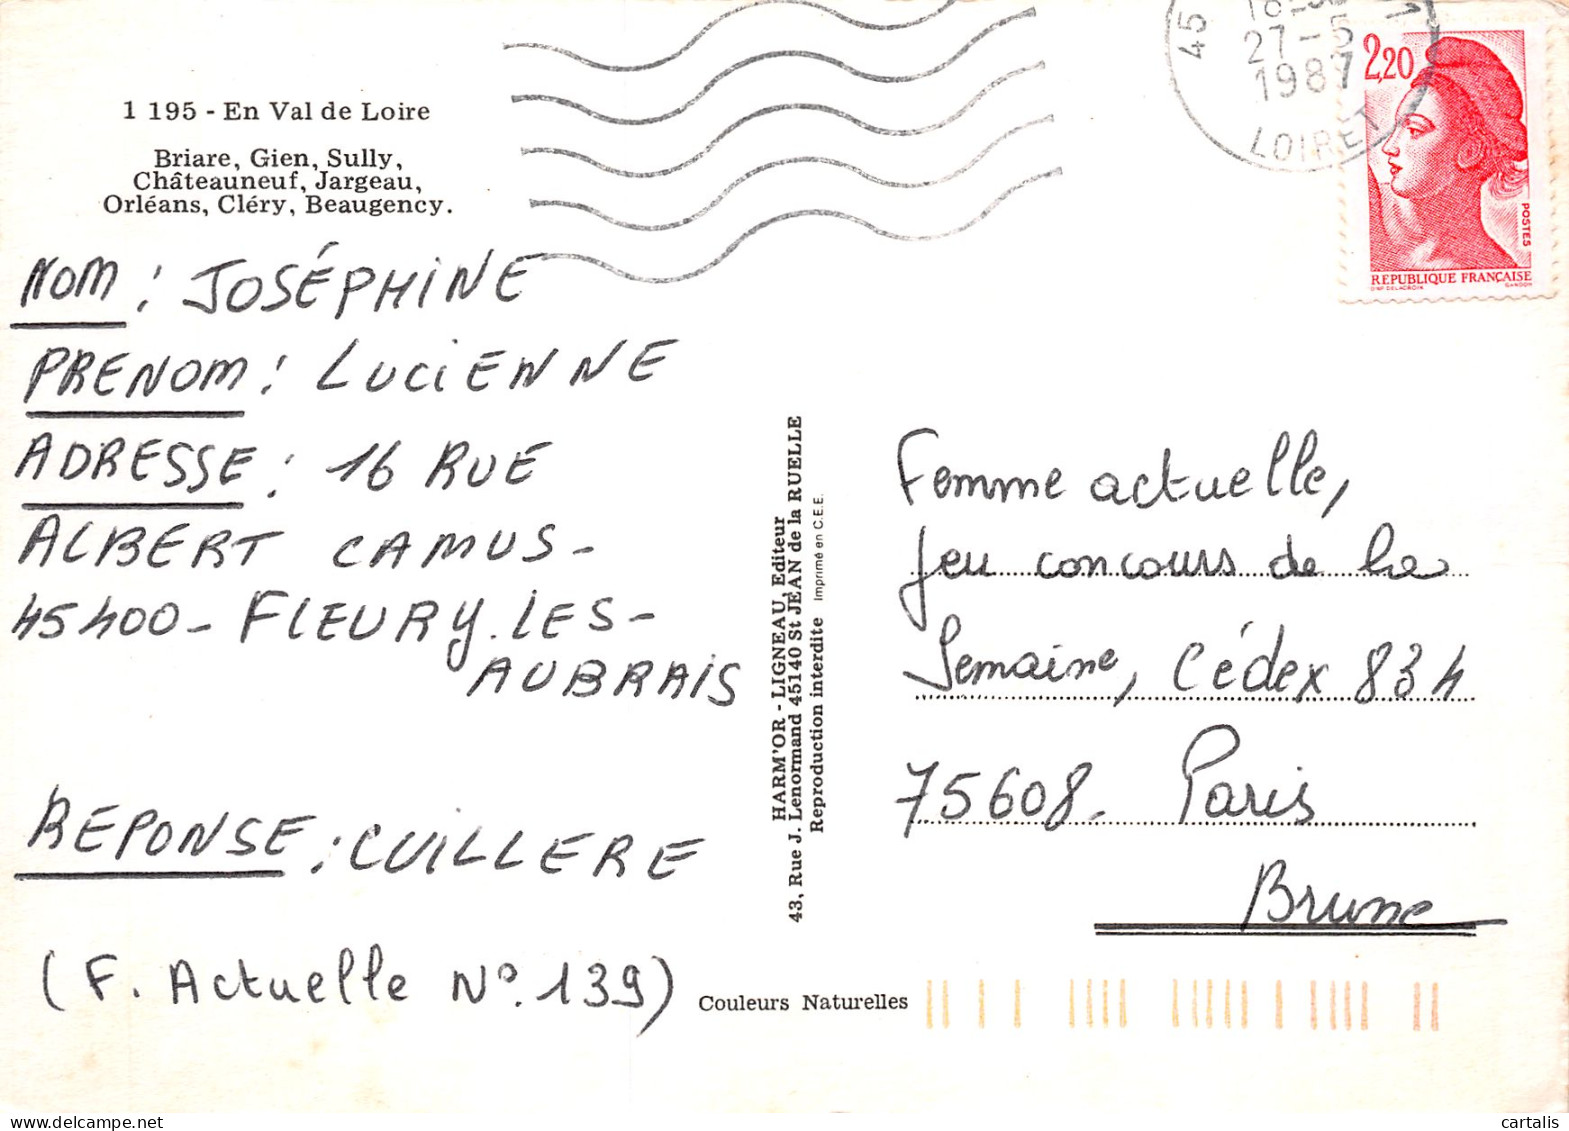 1 195 - En Val de Loire
Briare, Gien, Sully,
Châteauneuf, Jargeau,
Orléans, Cléry, Beaugency.
NOM : JOSÉPHINE
PRENOM : LUCIENNE
ADRESSE : 16 RUE
ALBERT CAMUS-
45400- FLEURY.LES-
AUBRAIS
REPONSE : CUILLERE
(F. Actuelle N°. 139)
HARM'OR - LIGNEAU, Editeur
43, Rue J. Lenormand 45140 St JEAN de la RUELLE
Reproduction interdite Imprimé en C.E.E.
Couleurs Naturelles
45
27-5
1987
LOIRET
2,20
POSTES
REPUBLIQUE FRANÇAISE
D'AP. DELACROIX GANDON
Femme actuelle,
Jeu concours de la
Semaine, Cédex 834
75608. Paris
Brune
cartalis